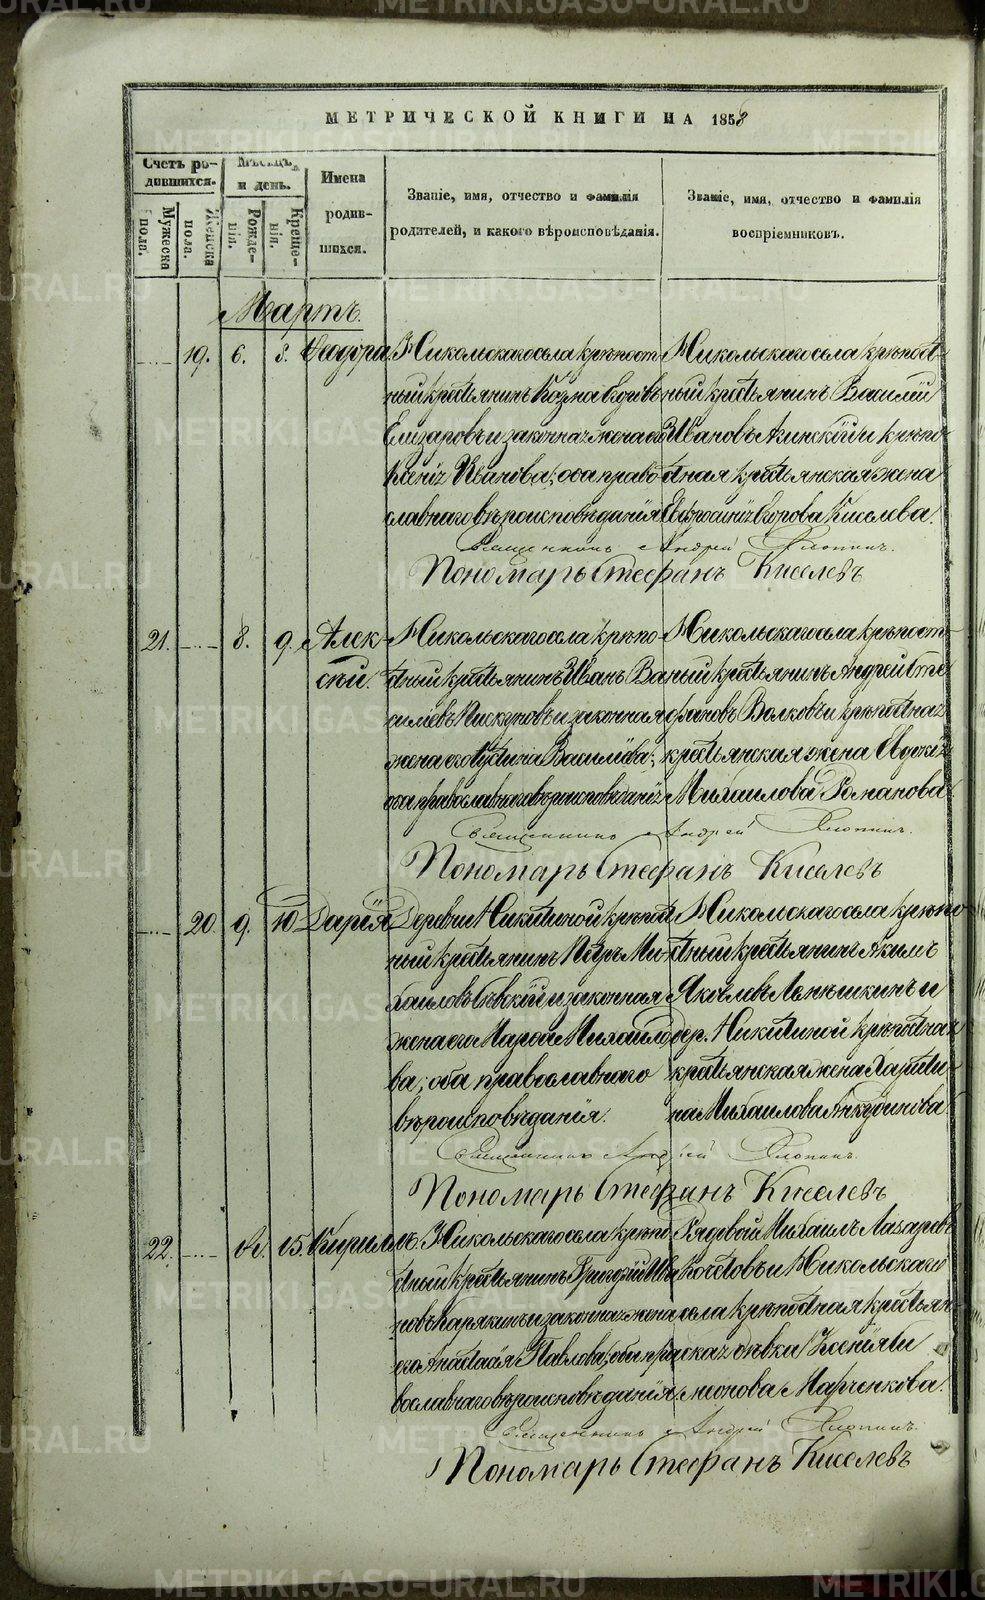 МЕТРИЧЕСКОЙ КНИГИ НА 1858
Счетъ ро-
дившихся.
Мѣсяцъ
и день.
Имена
родив-
шихся.
Званіе, имя, отчество и фамилія
родителей, и какого вѣроисповѣданія.
Званіе, имя, отчество и фамилія
воспріемниковъ.
Мужеска
пола.
Женска
пола.
Рожде-
нія.
Креще-
нія.
Мартъ.
19. 6. 8. Ѳеодора
Никольскаго села крѣпост
ный крестьянинъ Козма
Елизаровъ и законная жена его
Ксенія Иванова; оба право
славнаго вѣроисповѣданія
Никольскаго села крѣпост-
ный крестьянинъ Василій
Ивановъ и крѣпо-
стная крестьянская жена
Евфросинія Егорова Киселева.
Священникъ Андрей Хлопинъ.
Пономарь Стефанъ Киселевъ
21. 8. 9. Алек
сѣй.
Никольскаго села крѣпо
стный крестьянинъ Иванъ Ва
силіевъ Пискуновъ и законная
жена его Устина Василіева;
оба православнаго вѣроисповѣданія
Никольскаго села крѣпост-
ный крестьянинъ Андрей Сте
фановъ Волковъ и крѣпостная
крестьянская жена Евдокія
Михаилова Романова
Священникъ Андрей Хлопинъ.
Пономарь Стефанъ Киселевъ
20 9. 10 Дарія
Деревни Никитиной крѣпост
ный крестьянинъ Петръ Ми-
хаиловъ и законная
жена его Марѳа Михаило
ва; оба православнаго
вѣроисповѣданія.
Никольскаго села крѣпо
стный крестьянинъ Акимъ
Яковлевъ Лепешкинъ и
дер. Никитиной крѣпостная
крестьянская жена Харити
на Михаилова Анкудинова
Священникъ Андрей Хлопинъ.
Пономарь Стефанъ Киселевъ
22. 15. Кириллъ.
Никольскаго села крѣпо
стный крестьянинъ Григорій Ива
новъ Карякинъ и законная жена
его Анастасія Павлова; оба пра
вославнаго вѣроисповѣданія
Рядовой Михаилъ Лазаревъ
Кочетовъ и Никольскаго
села крѣпостная крестьян-
ская дѣвка Ксенія Ти
мофѣева Марченкова.
Священникъ Андрей Хлопинъ.
Пономарь Стефанъ Киселевъ
METRIKI.GASO-URAL.RU